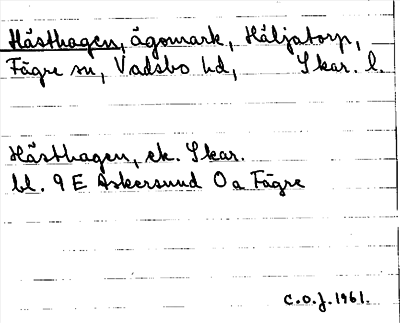 Hästhagen, ägomark, Häljatorp,
Fägre sn, Vadsbo hd, Skar. l.
Hästhagen, ek. Skar.
bl. 9 E Askersund O a Fägre
C.O.J. 1961.